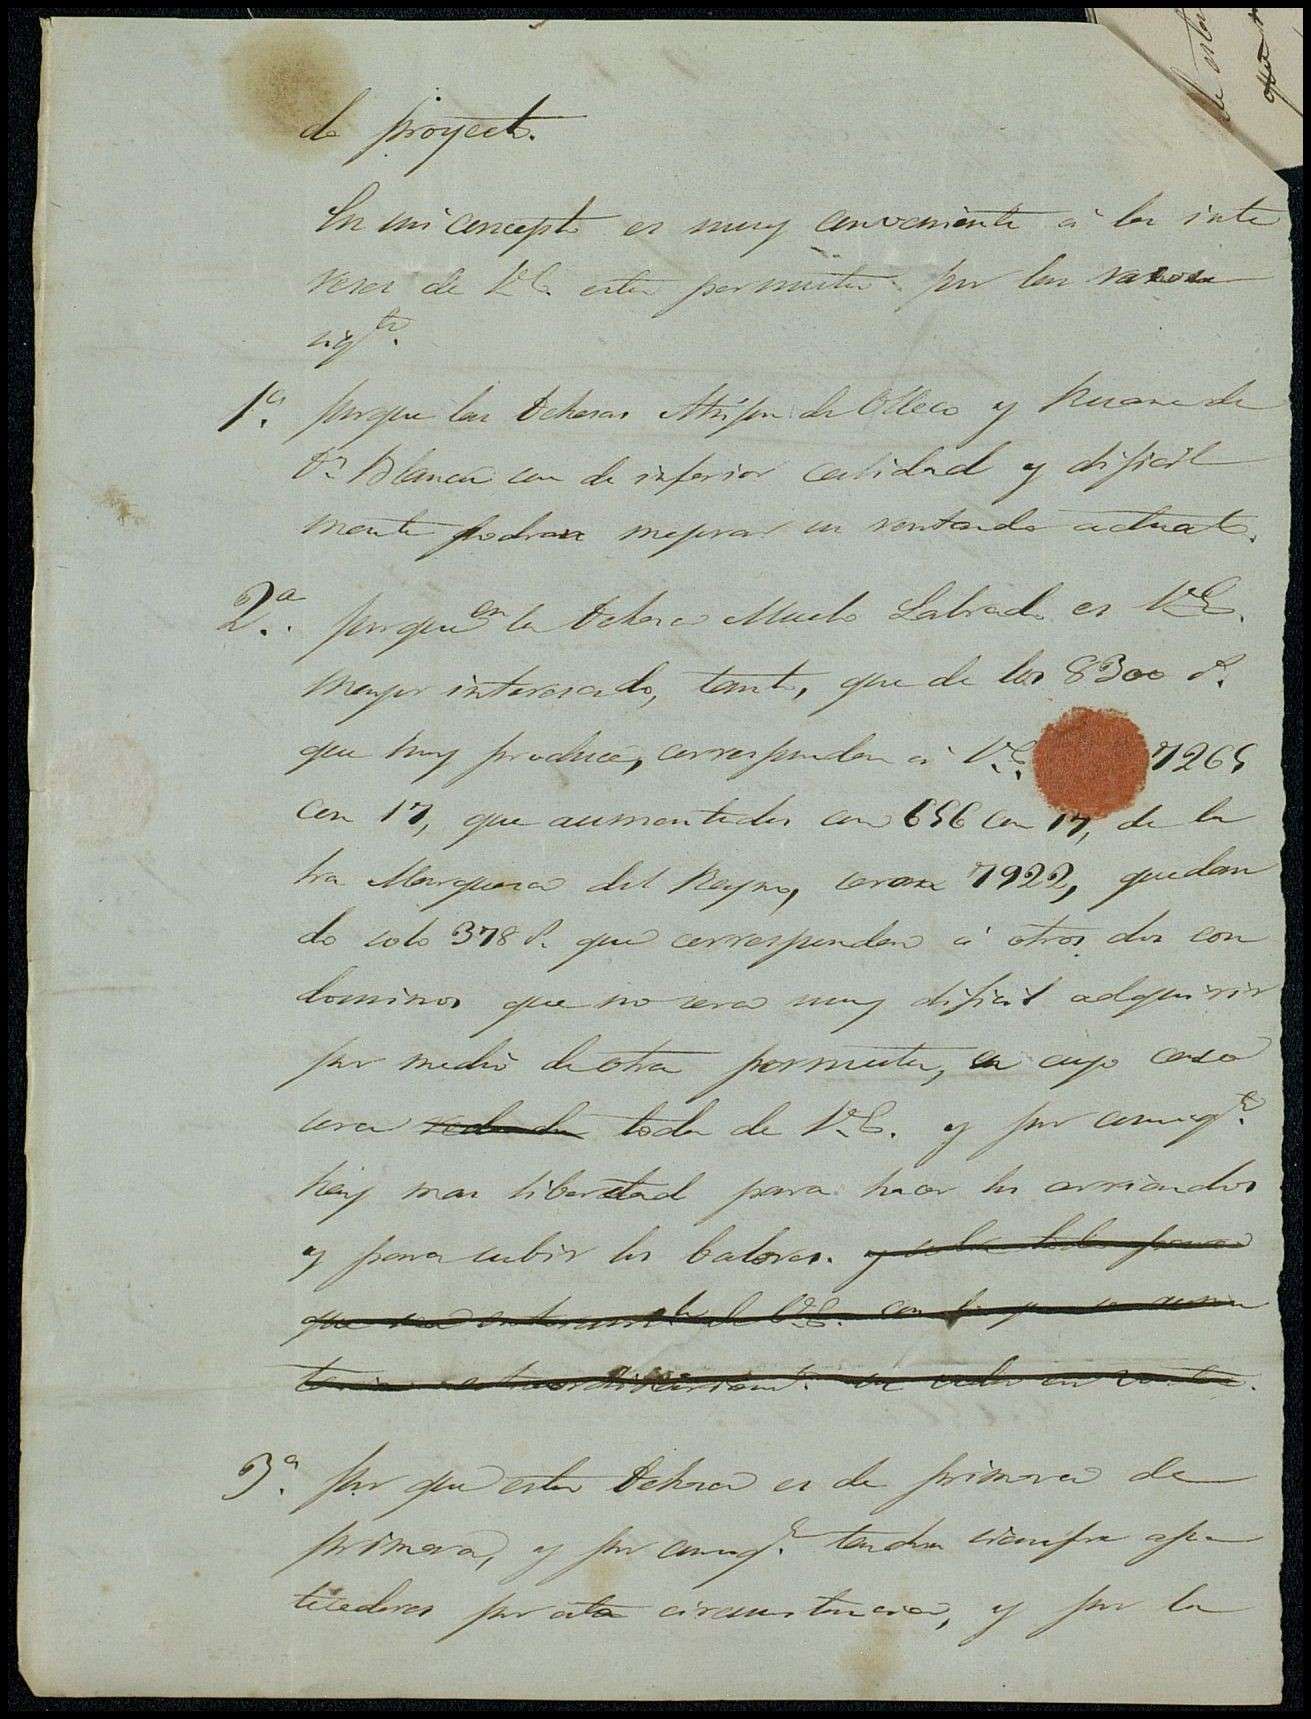 de proyecto.
En mi concepto es muy conveniente á los inte
reses de V.E. esta permuta por las razones
sigtes.
1ª. porque las Dehesas de y de
Bª Blanca son de inferior calidad y dificil
mente podran mejorar su rentando actual.
2ª. porque en la Dehesa Labrado es V.E.
mayor interesado, tanto, que de los 8300 r.
que hoy produce, corresponden á V.E. 7265
con 17, que aumentados con 656 con 17, de la
tra Marquesa del Reyno, seran 7922, quedan
do solo 378 r. que corresponden á otros dos con
dominos que no sera muy dificil adquirir
por medio de otra permuta, en cuyo caso
sera toda de V.E. y por consigte.
hay mas libertad para hacer los arriendos
y para subir los balores. y sobre todo para
que sea de V.E. con lo que se
extraordinariamte. su valor en renta.
3ª. por que esta Dehesa es de primera de
primera, y por consigte. tendra siempre ape
tecedores por esta circunstancia, y por la
de esta
que